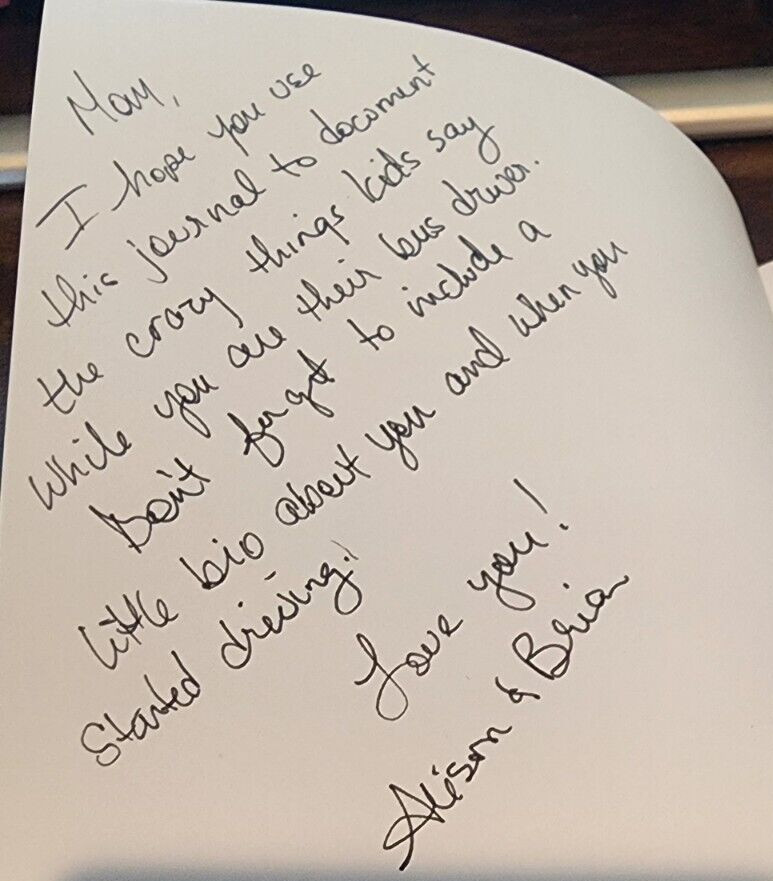 Mom,
I hope you use
this journal to document
the crazy things kids say
while you are their bus driver.
Don't forget to include a
little bio about you and when you
started driving!
Love you!
Alison & Brian